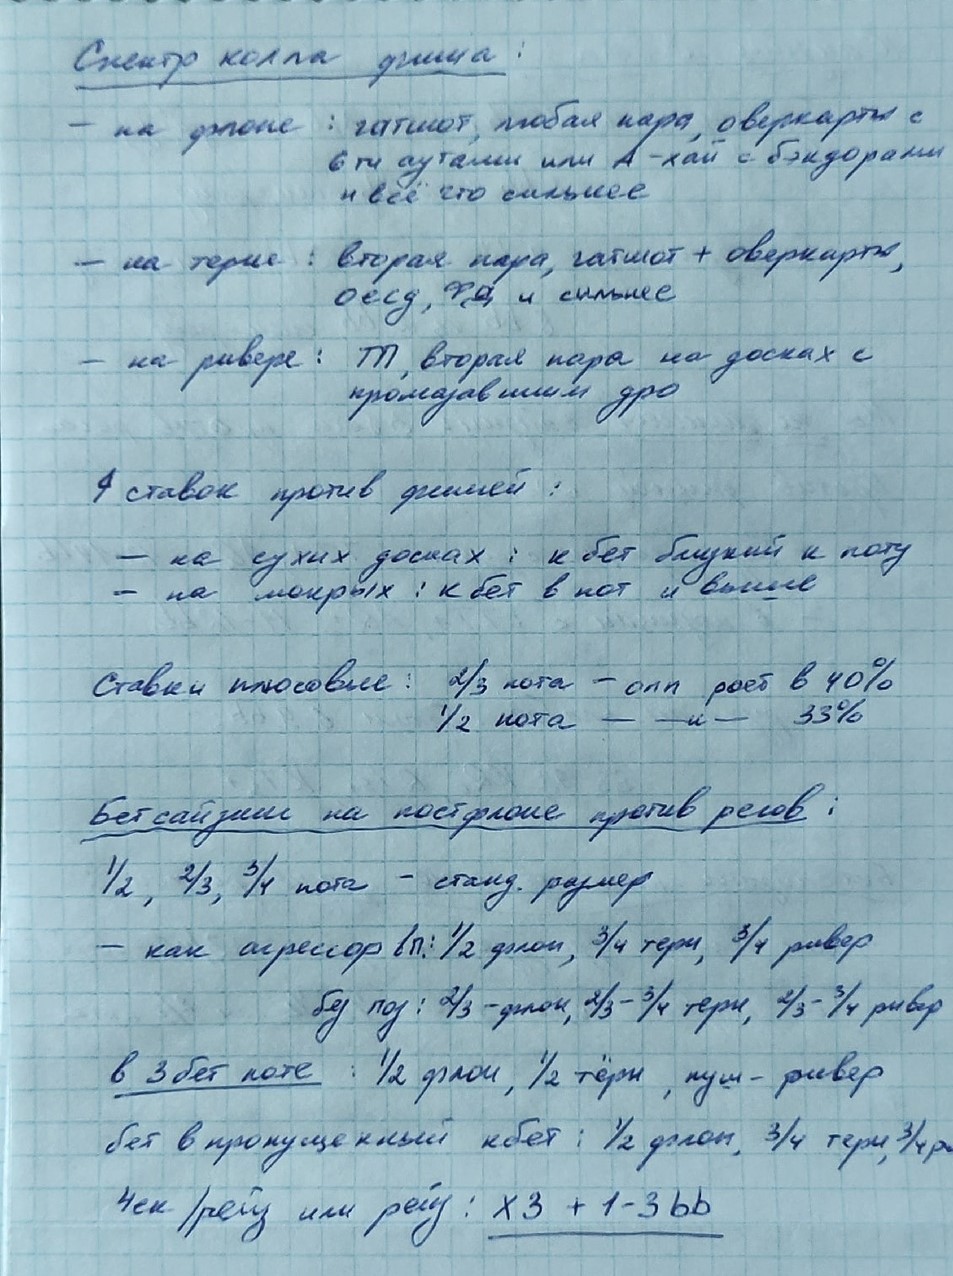 Спектр колла фиша:
- на флопе : гатшот, любая пара, оверкарты с
6ти аутами или А-хай с бэкдорами
и всё что сильнее
- на терне : вторая пара, гатшот + оверкарты,
оесд, ФД и сильнее
- на ривере : ТП, вторая пара на досках с
промазавшим дро
↑ ставок против фишей :
- на сухих досках : к бет близкий к поту
- на мокрых : к бет в пот и выше
Ставки плюсовые : 2/3 пота - опп фолд в 40%
1/2 пота - -//- 33%
Бетсайзинг на постфлопе против регов :
1/2, 2/3, 3/4 пота - станд. размер
- как агрессор вП: 1/2 флоп, 3/4 терн, 3/4 ривер
без поз : 2/3 - флоп, 2/3 - 3/4 терн, 2/3 - 3/4 ривер
в 3бет поте : 1/2 флоп, 1/2 тёрн, пуш - ривер
бет в пропущенный кбет : 1/2 флоп, 3/4 терн, 3/4 р
Чек/рейз или рейз : х3 + 1-3bb